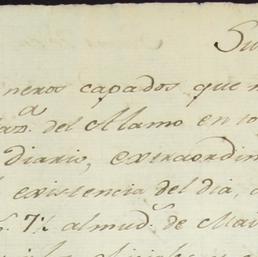 Su
neros capados que n
Haz.ª del Alamo en lo
diario, extraordin
existencia del dia,
7½ almud.s de Mai